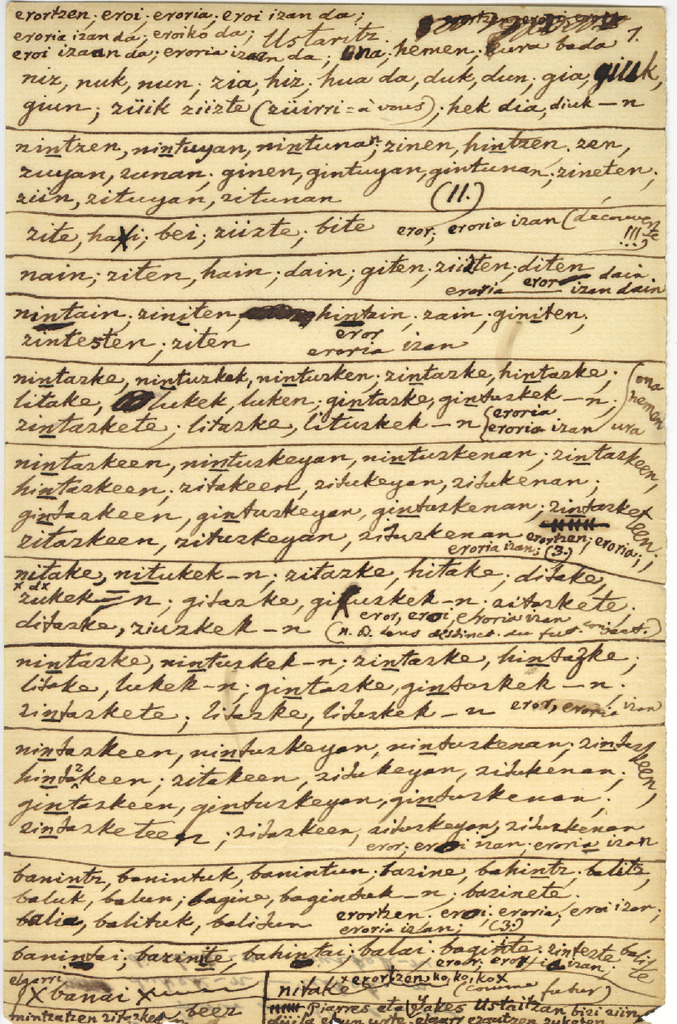 erortzen, eroi. eroria, eroi izan da;
eroria izan da; eroiko da; Ustaritz.
eroi izan da; eroria izan da, Ona, hemen, hura bada 1.
niz, nuk, nun; zia, hiz. hua da, duk, dun; gia, giuk,
giun; züik züizte (züirri = à vous); hek dia, diuk — n
nintzen, nintuyan, nintunan; zinen, hintzen. zen,
zuyan, zunan. ginen, gintuyan, gintunan; zineten;
ziin, zituyan, zitunan (11.)
zite, hadi; bei; züizte; bite eror; eroria izan (découverte !!!)
nain; ziten, hain; dain; giten; züizten; diten dain
eroria eror izan dain
nintain; ziniten, hintain, zain, giniten;
zintesten; ziten eror
eroria izan
nintazke, nintuzkek, nintuzken; zintazke, hintazke;
litake, lukek, luken; gintazke, gintuzkek — n;
zintazkete; litazke, lituzkek — n eroria
eroria izan
ona
hemen
ura
nintazkeen, nintuzkeyan, nintuzkenan; zintazkeen,
hintazkeen; zitakeen, zitukeyan, zitukenan;
gintazkeen, gintuzkeyan, gintuzkenan; zintazketeen;
zitazkeen, zituzkeyan, zituzkenan erortzen; eroria;
eroria izan; (3.)
nitake, nitukek-n; zitazke, hitake; ditake,
zukek = n; gitazke, gituzkek — n. zitazkete.
ditazke, ziuzkek — n eror, eroi, eroria izan
(n. B. sens distinct. du fut. conject.)
nintazke, nintuzkek-n; zintazke, hintazke;
litake, lukek-n; gintazke, gintuzkek — n.
zintazkete; litazke, lituzkek — n eror, eroria izan
nintazkeen, nintuzkeyan, nintuzkenan; zintazkeen,
hintakeen; zitakeen, zitukeyan, zitukenan;
gintazkeen, gintuzkeyan, gintuzkenan;
zintazketeen; zitazkeen, zituzkeyan, zituzkenan
eror, eroi izan; eroria izan
banintz, banintuk, banintun; bazine, bahintz. balitz,
baluk, balun; bagine, bagintuk — n; bazinete.
balia, balituk, balitun erortzen. eroi, eroria, eroi izan;
eroria izan; (3.)
banintai; bazinite, bahintai; balai. baginte. zintezte balite
eror, eroi izan;
elgarri
x banai x
beez
mintzatzen zitazkes
nitake x erortzen ko, ko, ko x
(comme futur)
Piarres eta Yakes Ustaitzan bizi ziin